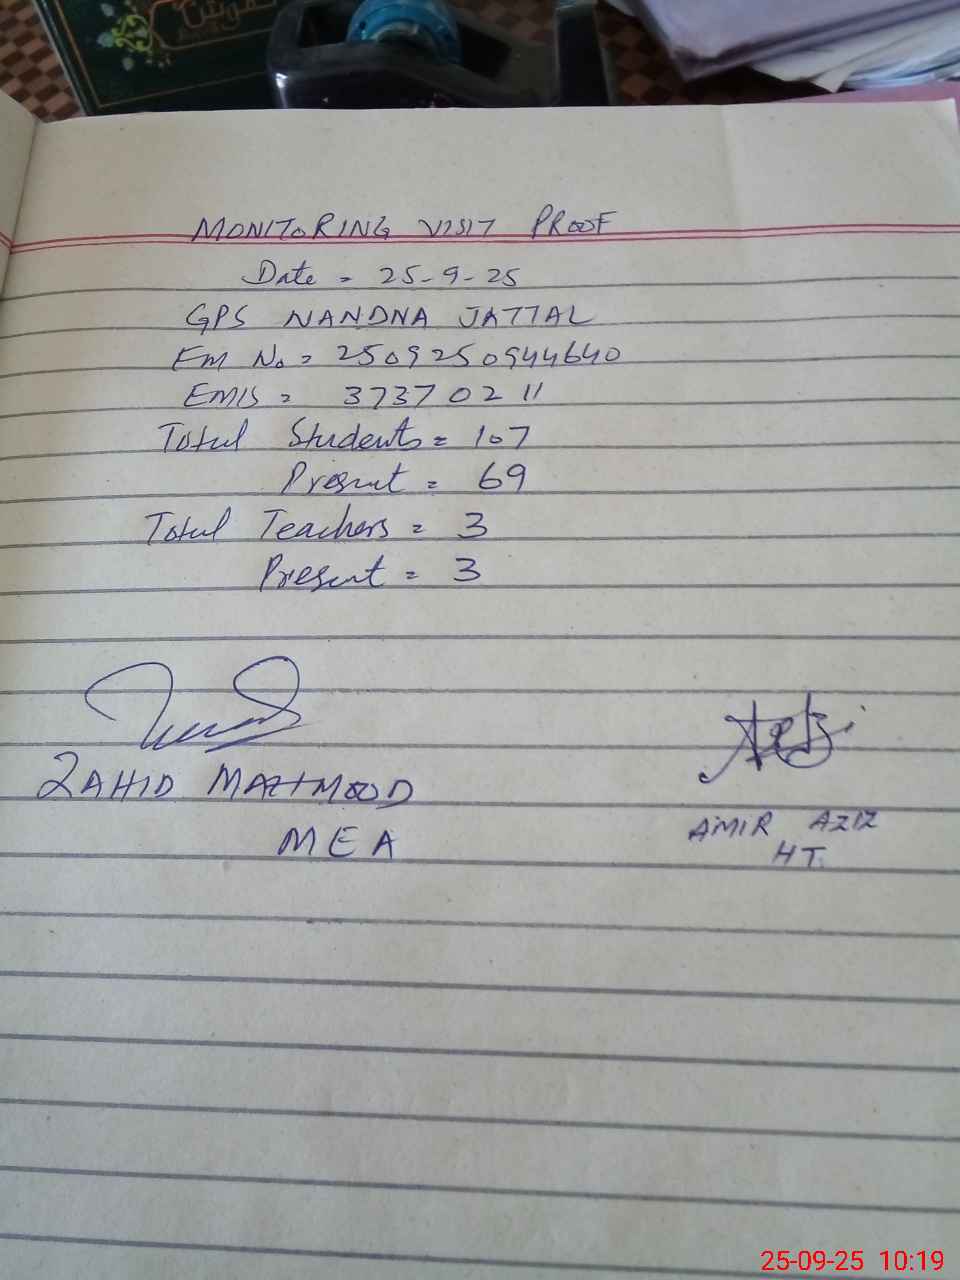 MONITORING VISIT PROOF
Date = 25-9-25
GPS NANDNA JATTAL
EM No = 250925094 4640
EMIS = 37370211
Total Students = 107
Present = 69
Total Teachers = 3
Present = 3
ZAHID MAHMOOD
MEA
AMIR AZIZ
HT.
25-09-25 10:19